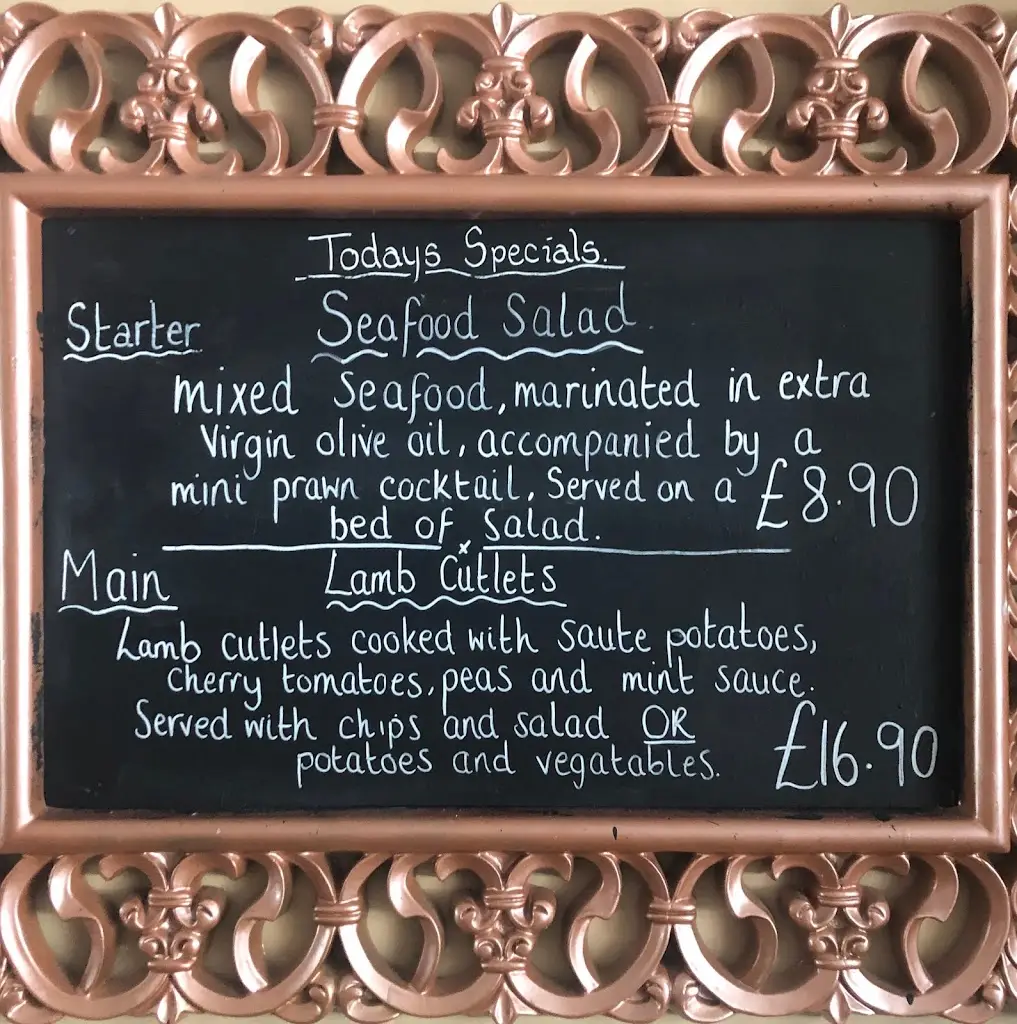 Todays Specials.
Starter
Seafood Salad.
mixed Seafood, marinated in extra
Virgin olive oil, accompanied by a
mini prawn cocktail. Served on a £8.90
bed of Salad.
x
Main
Lamb Cutlets
Lamb cutlets cooked with saute potatoes,
cherry tomatoes, peas and mint sauce.
Served with chips and salad OR
potatoes and vegatables. £16.90